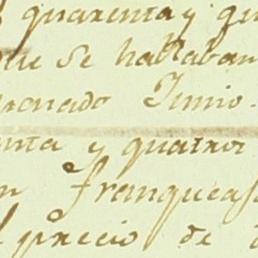 quarenta y qu
que se hallaban
ronado Junio.
enta y quatro
en franqueas
l precio de